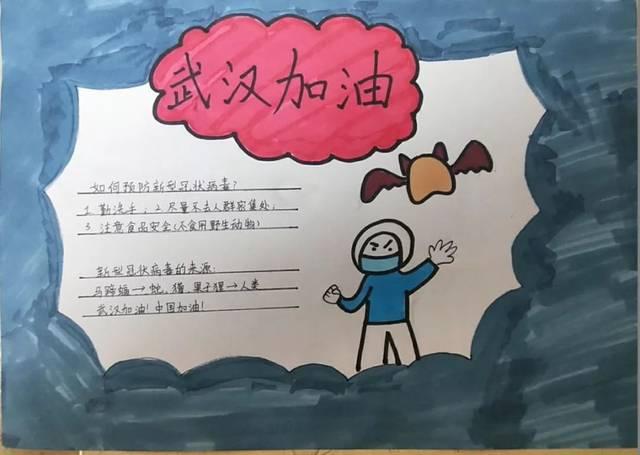 武汉加油
如何预防新型冠状病毒?
1. 勤洗手;2.尽量不去人群密集处;
3. 注意食品安全(不食用野生动物)
新型冠状病毒的来源:
马蹄蝠→蛇、猫、果子狸→人类
武汉加油!中国加油!